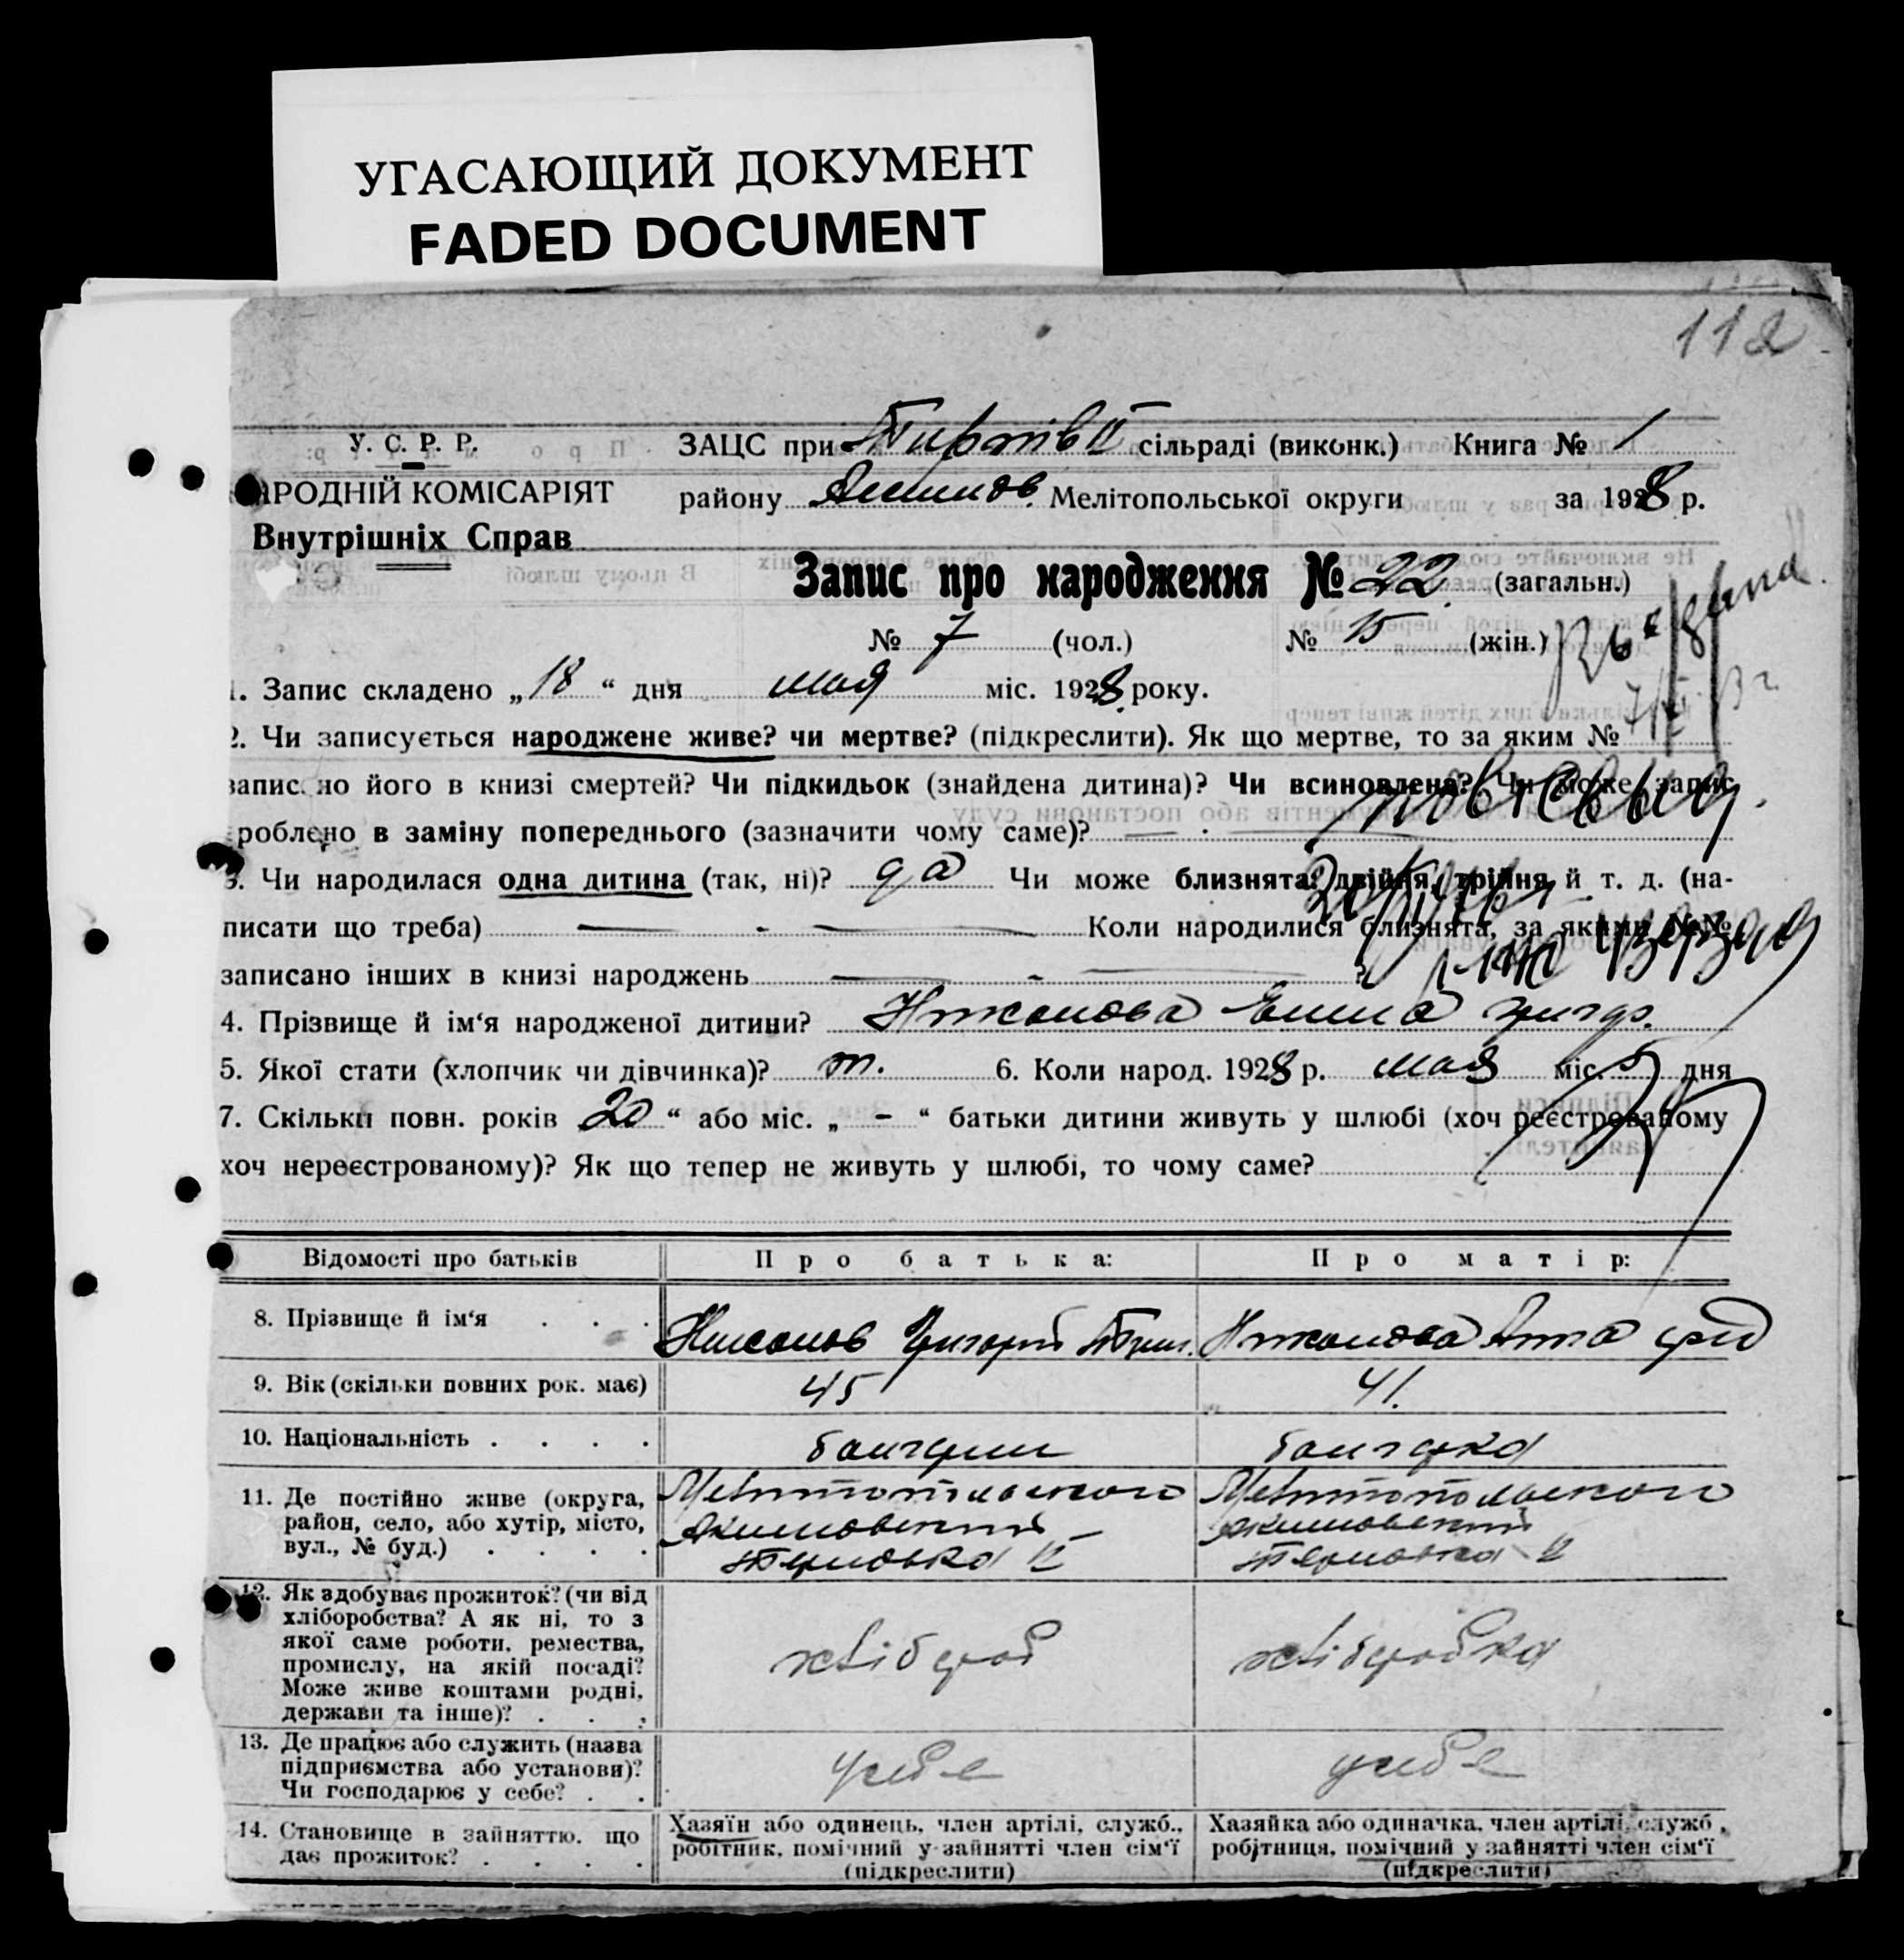 УГАСАЮЩИЙ ДОКУМЕНТ
FADED DOCUMENT
112
У. С. Р. Р.
ЗАЦС при сільраді (виконк.) Книга № 1
АРОДНІЙ КОМІСАРІЯТ
району Акимов. Мелітопольської округи за 1928 р.
Внутрішніх Справ
Запис про народження № 22. (загальн.)
№ 7 (чол.) № 15 (жін.)
1. Запис складено „18“ дня мая міс. 1928 року.
2. Чи записується народжене живе? чи мертве? (підкреслити). Як що мертве, то за яким №
запис. но його в книзі смертей? Чи підкидьок (знайдена дитина)? Чи всиновлена? Чи може, запис
роблено в заміну попереднього (зазначити чому саме)? —
3. Чи народилася одна дитина (так, ні)? да Чи може близнята: двійня, трійня й т. д. (на-
писати що треба) — - — Коли народилися близнята, за якими №№
записано інших в книзі народжень — - —
4. Прізвище й ім‘я народженої дитини? Никонова
5. Якої стати (хлопчик чи дівчинка)? 6. Коли народ. 1928 р. мая міс. 5 дня
7. Скільки повн. років 20 “ або міс. „ - “ батьки дитини живуть у шлюбі (хоч реєстрованому
хоч нереєстрованому)? Як що тепер не живуть у шлюбі, то чому саме?
Відомості про батьків
Про батька:
Про матір:
8. Прізвище й ім‘я . . .
Никонов Григорий
Никонова Анна
9. Вік (скільки повних рок. має)
45
41.
10. Національність . . . .
болгарин
болгарка
11. Де постійно живе (округа,
район, село, або хутір, місто,
вул., № буд.) . . . .
Мелитопольского
Акимовский
Терновка II
Мелитопольского
Акимовский
Терновка II
12. Як здобуває прожиток? (чи від
хліборобства? А як ні, то з
якої саме роботи, ремества,
промислу, на якій посаді?
Може живе коштами родні,
держави та інше)? . . .
хлібороб
хліборобка
13. Де працює або служить (назва
підприємства або установи)?
Чи господарює у себе? . .
у себе
у себе
14. Становище в зайняттю, що
дає прожиток? . . . .
Хазяїн або одинець, член артілі, служб.,
робітник, помічний у зайнятті член сім‘ї
(підкреслити)
Хазяйка або одиначка, член артілі, служб.,
робітниця, помічний у зайнятті член сім‘ї
(підкреслити)